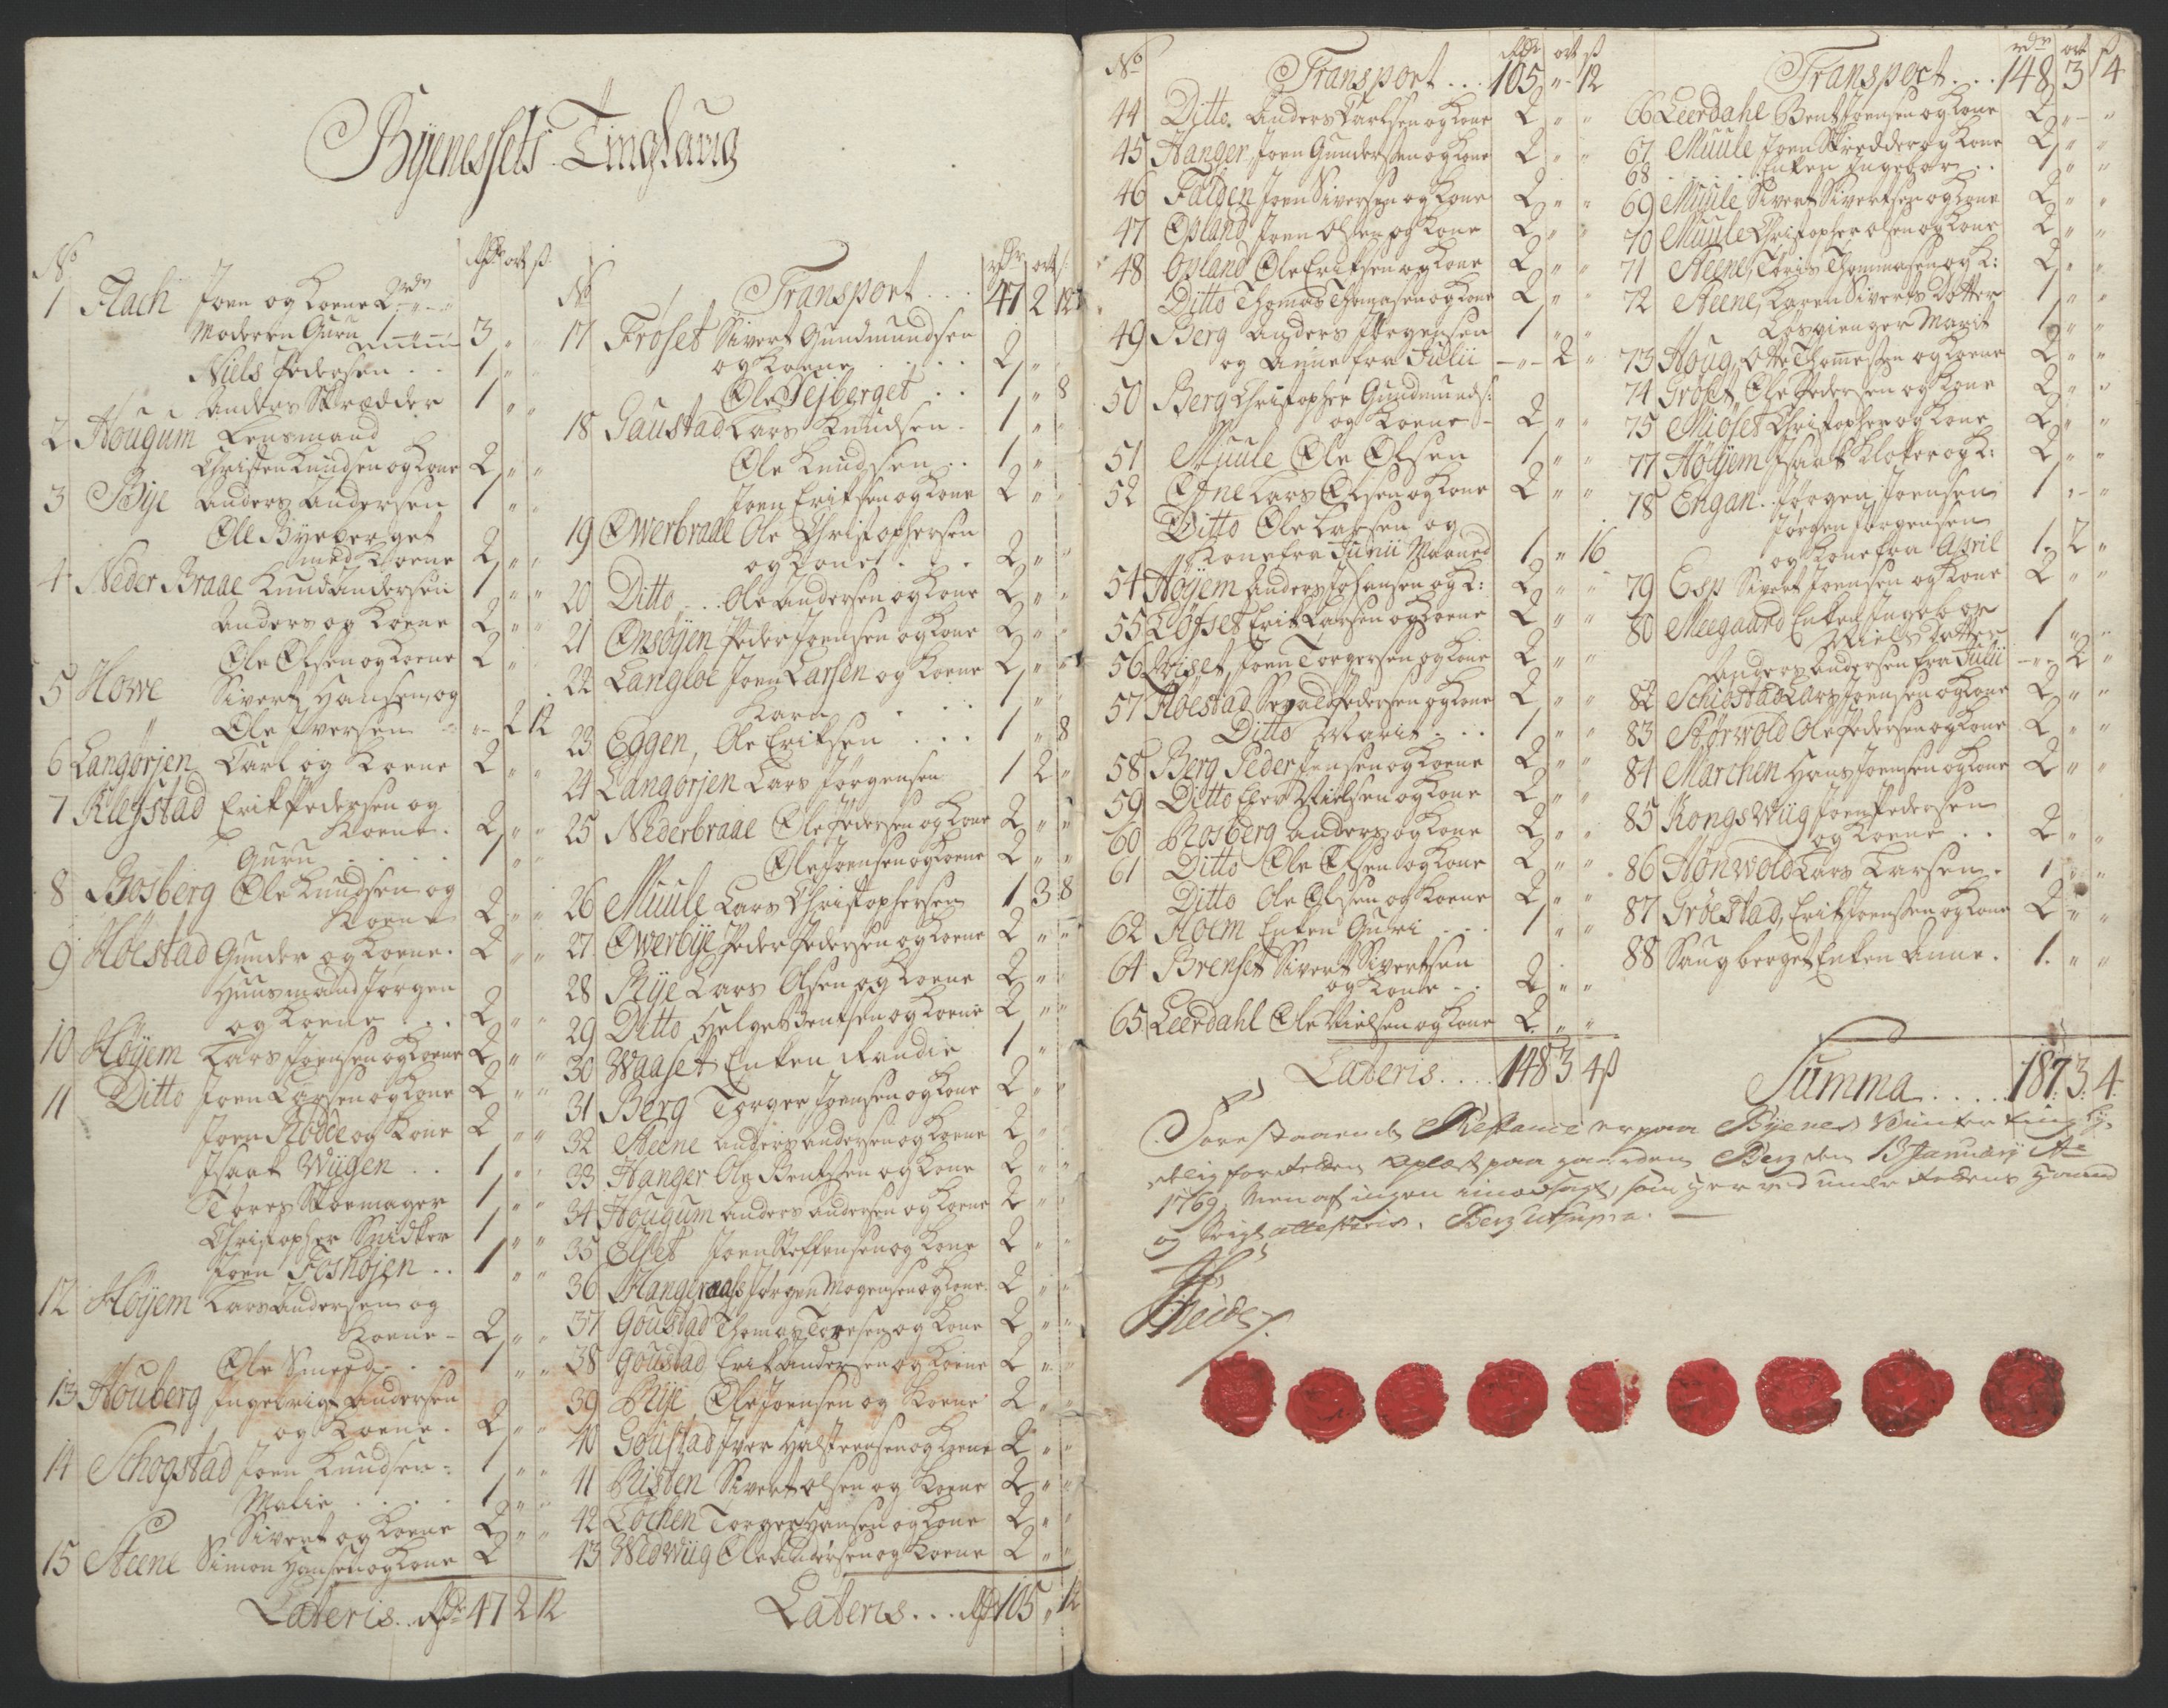 Byenessets Tinglaug
No Rdr ort ß
1 Flach Joen og Koene 2 rdr " "
Moderen Guru 1 " " 3 " "
Niels Pedersen . . 1 " "
Anders Skrædder 1 " "
2 Hougum Lensmand
Christen Knudsen og Kone 2 " "
3 Bye Anders Andersen 1 " "
Ole Byeberget
med Koene 2 " "
4 Neder Braae Knud Andersen 1 " "
Anders og Koene 2 " "
Ole Olsen og Koene 2 "
5 Howe Sivert Hansen og
" Ole Iversen " 2 12
6 Langørjen Carl og Koene 2 " "
7 Klefstad Erik Pedersen og
Koene . 2 " "
Guru . . . . 1 " "
8 Rosberg Ole Knudsen og
Koene 2 " "
9 Høestad Gunder og Koene . 2 " "
Huusmand Jørgen
og Koene . . . 2 " "
10 Høyem Lars Joensen og Koene 2 " "
11 Ditto Joen Larsen og Kone 2 " "
Joen Rødde og Kone 2 " "
Isaak Wiigen . . 1 " "
Tores Skoemager 1 " "
Christopher Snidker 1 " "
Joen Foshøjen . . 1 " "
12 Høyem Lars Andersen og
Koene - 2 " "
Ole Smeed . . . 1 " "
13 Houberg Ingebrigt Andersen
og Koene . 2 " "
14 Schogstad Joen Knudsen 1 " "
Malie . . . . 1 " "
Sivert og Koene 2 " "
15 Steene Simon Hansen og Kone 2
Lateris . . Rdr 47 2 12
No rdr ort ß
Transport . . . 47 2 12
17 Frøset Sivert Gundmundsen
og Koene . . . . 2 "
Ole Sejberget . . 1 " 8
18 Gaustad Lars Knudsen . 1 " "
Ole Knudsen . . 1 "
Joen Eriksen og Kone 2 " "
19 Øwerbraae Ole Christophersen
og Kone . . . 2 " "
20 Ditto . . Ole Andersen og Kone 2 " "
21 Onsøyen Peder Joensen og Kone 2 " "
22 Langloe Joen Larsen og Koene 2 " "
Kara . . . . 1 " "
23 Eggen, Ole Eriksen . . . 1 " 8
24 Langørjen Lars Jørgensen 1 2 "
25 Nederbraae Ole Pedersen og Kone 2 " "
Ole Joensen og Koene 2 " "
26 Muule Lars Christophersen 1 3 8
27 Øwerbye Peder Pedersen og Koene 2 " "
28 Rye Lars Olsen og Koene 2 " "
29 Ditto Helge Bentsen og Koene 2 " "
30 Waaset Enken Randie 1 "
31 Berg Torger Joensen og Kone 2 " "
32 Steene Anders Andersen og Koene 2 " "
33 Hanger Ole Bentsen og Kone 2 " "
34 Hougum Anders Andersen og Koene 2 " "
35 Elset Joen Steffensen og Kone 2 " "
36 Hangraas Jørgen Mogensen og Kone 2 " "
37 Goustad Thomas Toresen og Kone 2 " "
38 Goustad Erik Andersen og Koene 2 " "
39 Rye Ole Joensen og Koene 2 " "
40 Goustad Iver Halsteensen og Koene 2 " "
41 Risten Sivert Olsen og Koene 2 " "
42 Lochen Torger Hansen og Kone 2 " "
43 Wedwiig Ole Andersen og Koene 2 " "
Lateris . . . Rdr 105 " 12
No Rdr ort ß
Transport . . . 105 " 12
44 Ditto. Anders Carlsen og Kone 2 " "
45 Hanger Joen Gundersen og Kone 2 " "
46 Falden Joen Siversen og Kone 2 " "
47 Opland Joen Olsen og Kone 2 " "
48 Opland Ole Eriksen og Kone 2 " "
Ditto Thomas Thomasen og Kone 2 " "
49 Berg Anders Jørgensen 1 " "
og Anne fra Julii - " - 2 "
50 Berg Christopher Gundmunds:
og Koene - 2 " "
51 Muule Ole Olsen 1 " "
52 Ofne Lars Olsen og Kone 2 " "
Ditto Ole Larsen og
Kone fra Junii Maaned 1 " 16
54 Høyem Anders Johansen og K: 2 " "
55 Løfset Erik Larsen og Koene 2 " "
56 Wiset Joen Torgersen og Kone 2 " "
57 Høestad Sevald Pedersen og Kone 2 " "
Ditto Marit . . . 1 " "
58 Berg Peder Jensen og Koene 2 " "
59 Ditto Elev Nielsen og Kone 2 " "
60 Rosberg Anders og Kone 2 " "
61 Ditto Ole Olsen og Kone 2 " "
Ditto Ole Olsen og Koene 2 " "
62 Holm Enken Guri . . . 1 " "
64 Brenset Sivert Sivertsen
og Kone . . 2 " "
65 Leerdahl Ole Nielsen og Kone 2 " "
Lateris . . . . 148 3 4 ß
rdr ort ß
Transport . . . 148 3 4
66 Leerdahl Bent Joensen og Kone 2 " "
67 Muule Joen Skredder og Kone 2 " "
68 . . . . . Enken Ingebor . . 1 " "
69 Muule Sivert Sivertsen og Kone 2 " "
70 Muule Christopher Olsen og Kone 2 " "
71 Steene, Tøris Thommasen og K: 2 " "
72 Steene, Karen Siverts Dotter 1 " "
Løsgienger Marit 1 " "
73 Houg, Otte Thomesen og Koene 2 " "
74 Grøset, Ole Pedersen og Kone 2 " "
75 Miøset Christopher og Kone 2 " "
77 Høyem Isaak Kloker og K: 2 " "
78 Engan . Jørgen Joensen 1 " "
Jørgen Jørgensen
og Kone fra April 1 " 2 "
79 Esp Sivert Joensen og Kone 2 " "
80 Meegaard Enken Ingebor
Niels Dotter 1 " "
Anders Andersen fra Julii - " - 2 "
82 Schiøstad Lars Joensen og Kone 2 " "
83 Størwold Ole Pedersen og Kone 2 " "
84 Marchen Hans Joensen og Kone 2 " "
85 Kongswiig Joen Pedersen
og Koene . . 2 " "
86 Hønwold Lars Larsen . 1 " "
87 Grøestad, Erik Joensen og Kone 2 " "
88 Saugberget Enken Anne . 1 . " "
Summa . . . . . 187 : 3 : 4 .
Forestaaende Restance er paa Byenes Winter Ting
for Retten oplæst paa gaarden Berg den 13 Januarij Ao
1769, Men af ingen imodsagt, som herved under Rettens Haand
og Seigl attesteris. Berg ut supra.